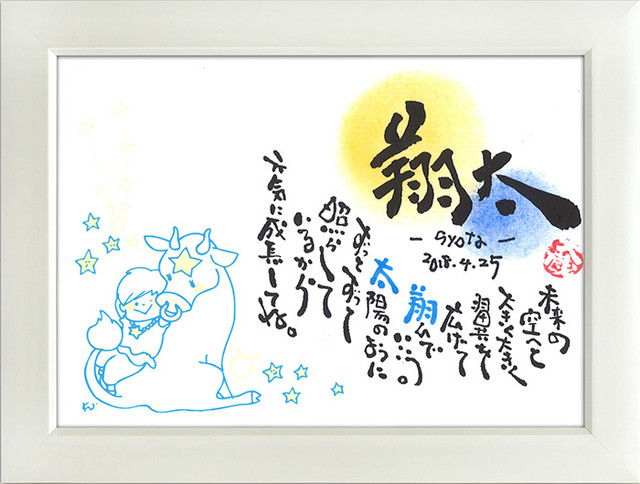 翔太
– syota –
2018.4.25
未来の
空へと
大きく大きく
翼を
広げて
翔んで
いこう。
太陽のように
ずっとずっと
照らして
いるから
元気に成長してね。